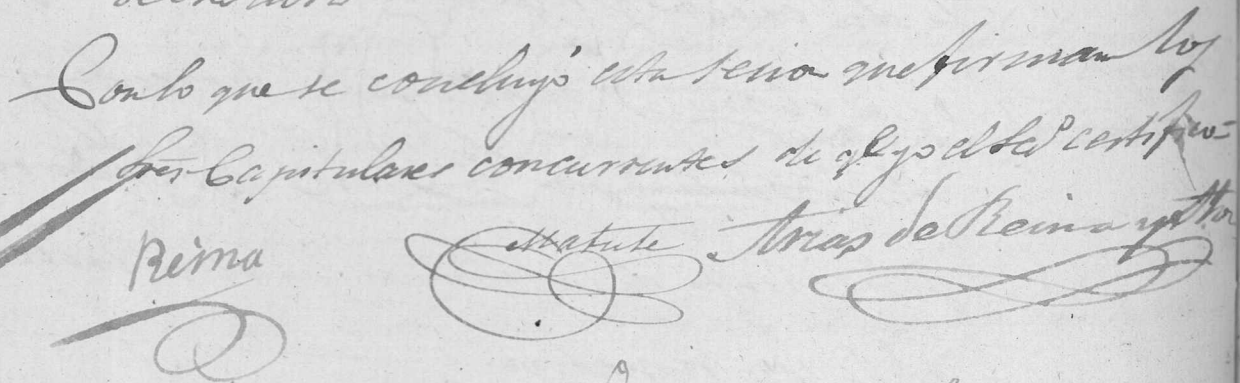 Con lo que se concluyó esta secion que firman los
Sres Capitulares concurrentes de qe yo el Secº certifico
Reina Matute Arias de Reina y